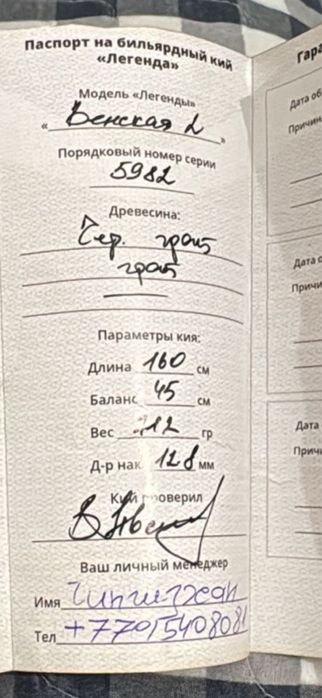 Паспорт на бильярдный кий
«Легенда»
Модель «Легенды»
« Венская 2 »
Порядковый номер серии
5982
Древесина:
Чер. граб
граб
Параметры кия:
Длина 160 см
Баланс 45 см
Вес 712 гр
Д-р нак 12.8 мм
Кий проверил
Ваш личный менеджер
Имя Чингизхан
Тел +77015408081
Гара
Дата об
Причин
Дата о
Причи
Дата
Прич